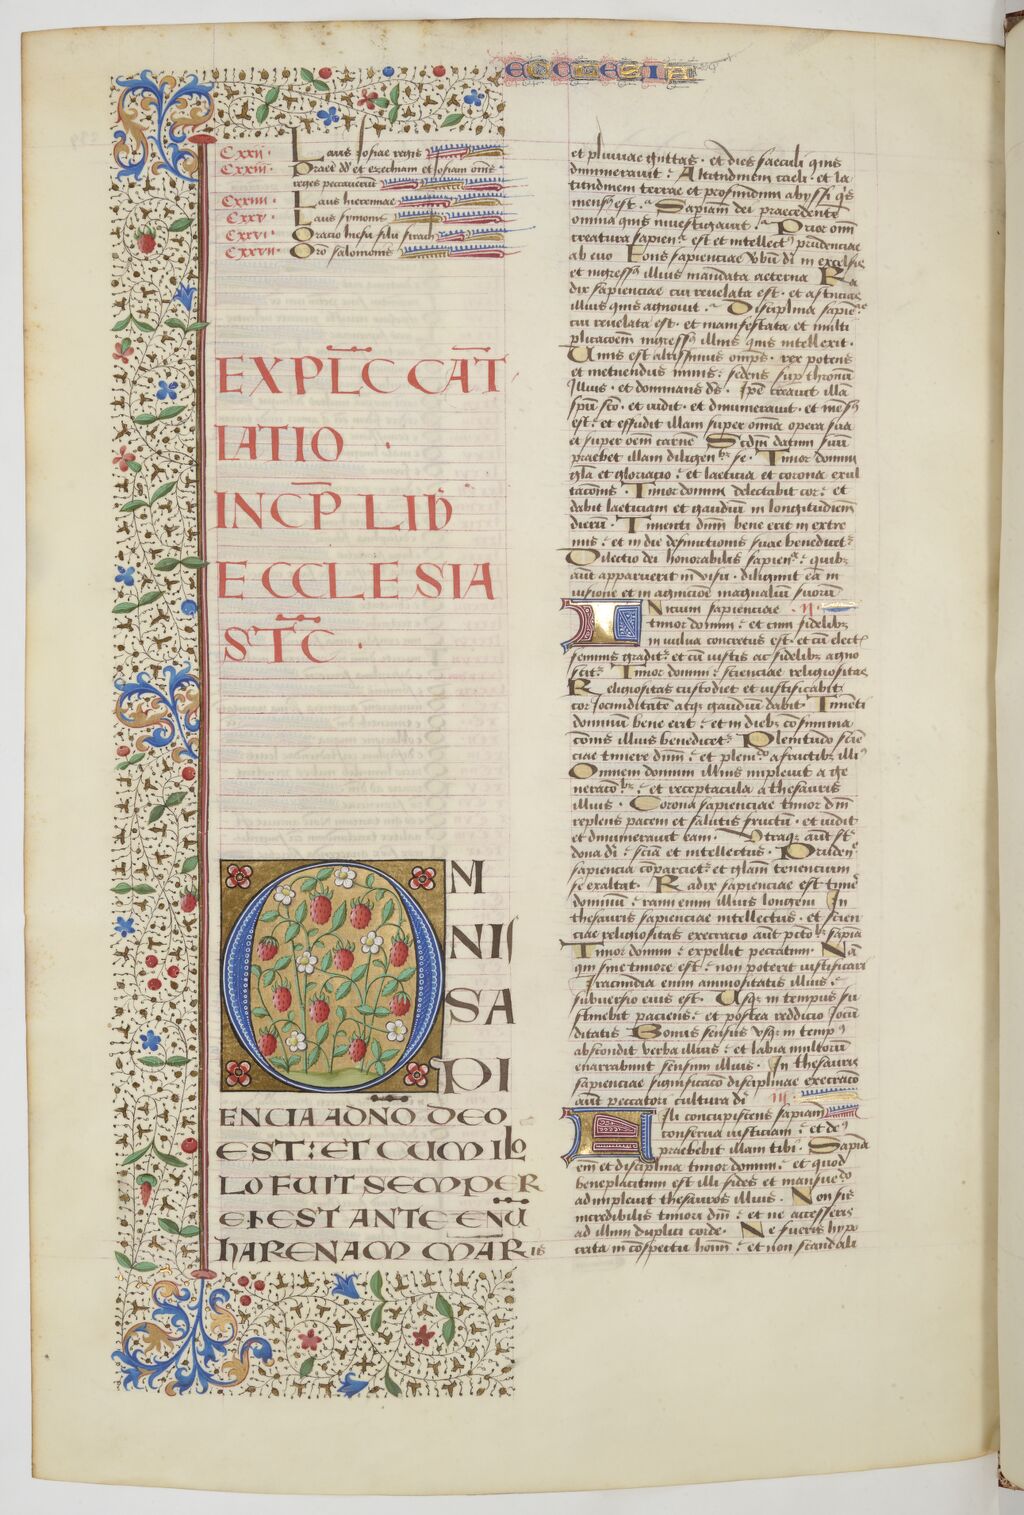 ECCLESIA
Cxxii· Laus Josiae regis
Cxxiii· Praeter dd et ezechiam et Josiam oms
reges peccaverunt
Cxxiiii· Laus hieremiae
Cxxv· Laus symonis
Cxxvi· Oracio hiesu filii sirach
Cxxvii· Oro salomonis
EXPLC CAT
IATIO
INCP LIB
ECCLESIA
STC·
OM
NIS
SA
PI
ENCIA A DNO DEO
EST: ET CUM IL
LO FUIT SEMPER
ET EST ANTE EVU
HARENAM MARIS
et pluviae guttas· et dies saeculi quis
dinumeravit: Altitudinem caeli· et la
titudinem terrae et profundum abyssi qs
mensus est· Sapiam dei praecedente
omnia quis investigavit· Prior oim
creatura sapien est et intellectus prudenciae
ab evo Fons sapienciae vbum di in excelsis
et ingressus illius mandata aeterna Ra
dix sapienciae cui revelata est· et astucias
illius quis agnovit· Disciplina sapie
cui revelata est· et manifestata et multi
plicacoem ingressus illius quis intellexit·
Unus est altissimus omps· rex potens
et metuendus nimis: sedens sup thronu
Illius· et dominans ds· Ipse creavit illa
spu sco· et vidit· et dinumeravit· et mensus
est: et effudit illam super omnia opera sua
et super oem carne Scdm datum suu
praebet illam diligentibus se· Timor domini
gla et gloriacio: et laeticia et corona exul
tacois· Timor domini delectabit cor: et
dabit laeticiam et gaudium in longitudiem
dieru· Timenti dnm bene erit in extre
mis: et in die defunctionis suae benedicet
Dilectio dei honorabilis sapiena: quib
aut apparuerit in visu· diligunt ea in
visione et in agnicoe magnaliu suoru
INicium sapienciae ·II·
timor domini: et cum fidelibus
in vulva concretus est· et cu elect
feminis gradit: et cu iustis ac fidelibus agno
scit: Timor domini: scienciae religiositas
Religiositas custodiet et iustificabit
cor iocunditate atq gaudiu dabit· Timeti
dominum bene erit: et in dieb cosumma
cois illius benedicet Plenitudo scie
ciae timere dnm: et plenido a fructib illi
Omnem domum illius implevit a ge
neracobus: et receptacula a thesauris
illius· Corona sapienciae timor dni
replens pacem et salutis fructu· et vidit
et dinumeravit eam· Utraq aut st
dona di: scia et intellectus· Pruden
sapiencia coparciet: et glam tenencium
se exaltat· Radix sapienciae est time
dominu: rami enim illius longevi In
thesauris sapienciae intellectus· et scien
ciae religiositas execracio aut pctobus sapia
Timor domini: expellit peccatum· Na
qui sine timore est: non poterit iustificari
Iracundia enim animositatis illius:
subversio eius est· Usq in tempus su
stinebit paciens: et postea reddicio iocu
ditatis Bonus sensus usq in tempus
abscondit verba illius: et labia multoru
enarrabunt sensum illius· In thesauris
sapienciae significaco disciplinae execraco
aut peccatori cultura di ·III·
FIli concupiscens sapiam
conserva iusticiam: et deus
praebebit illam tibi· Sapia
em et disciplina timor domini: et quod
beneplacitum est illi fides et mansuedo
adimplevit thesauros illius· Non sis
incredibilis timori dni: et ne accesseris
ad illum duplici corde· Ne fueris hypo
crita in cospectu homi: et non scandali